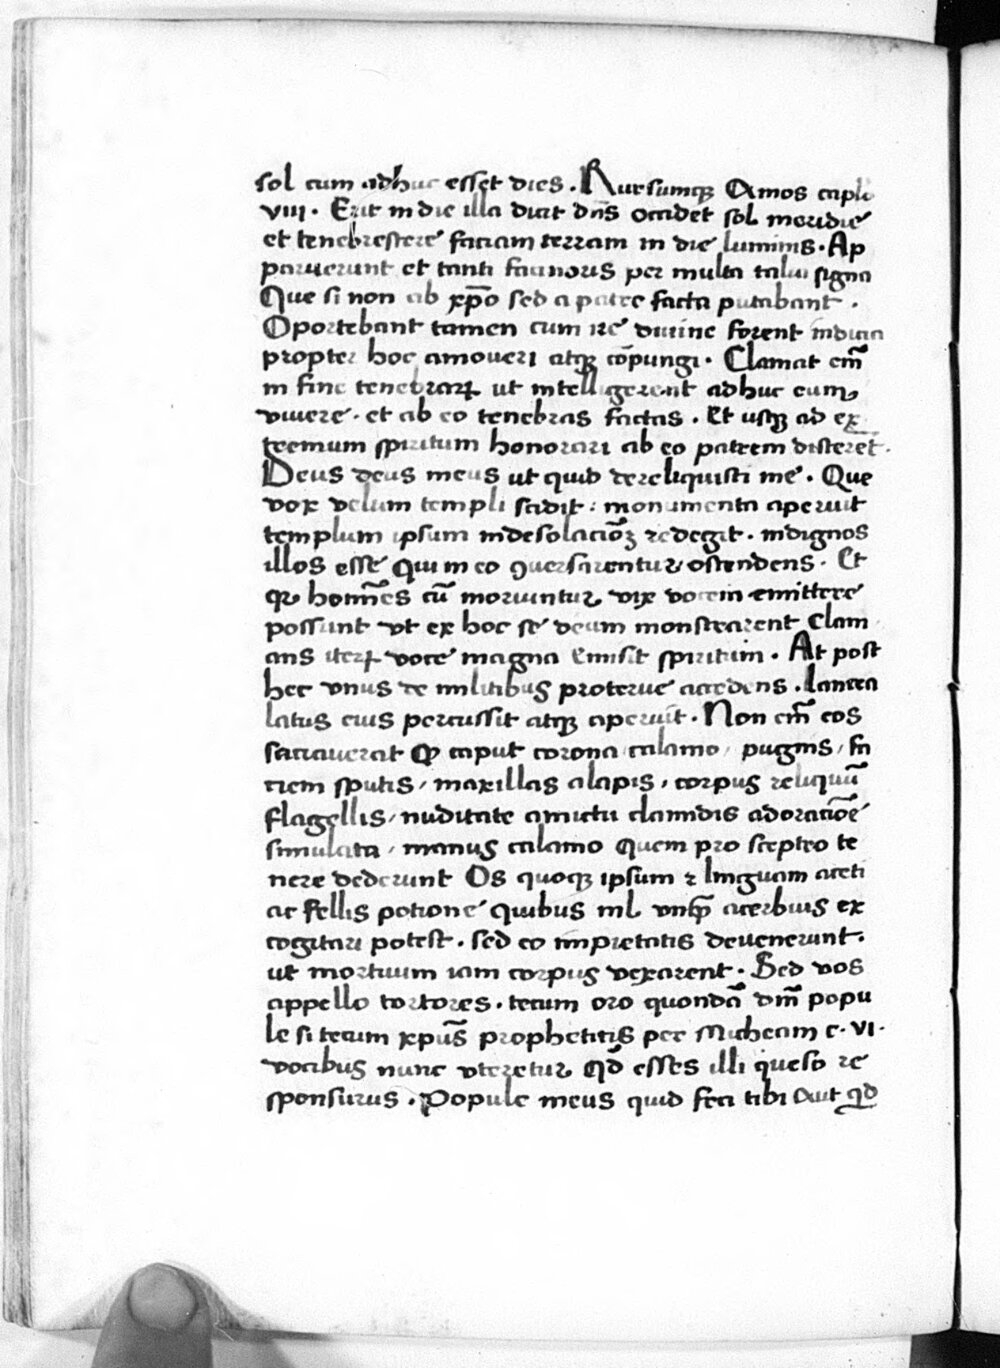 sol cum adhuc esset dies . Rursumqꝫ Amos caplo
viii . Erit in die illa dicit dn̄s occidet sol meridie
et tenebrescere faciam terram in die luminis . Ap
paruerunt et tanti facinoris per multa talui signa
Que si non ab xp̄o sed a patre facta putabant .
Oportebant tamen cum re diuine forent indicia
propter hoc amoueri atqꝫ cōpungi . Clamat em̄
in fine tenebrarꝝ ut intelligerent adhuc eum
viuere . et ab eo tenebras factas . Et usqꝫ ad ex
tremum spiritum honorari ab eo patrem disceret .
Deus deus meus ut quid dereliquisti me . Que
vox velum templi scidit : monumenta aperuit
templum ipsum indesolacōꝫ redegit . indignos
illos esse qui in eo ꝯuersarentur ostendens . Et
qꝛ homīes cū moriuntur vix vocem emittere
possunt vt ex hoc se deum monstrarent clam
ans iterꝝ voce magna emisit spiritum . At post
hec vnus de militibus proterue accedens . lancea
latus eius percussit atqꝫ aperuit . Non em̄ eos
saciauerat ꝙ caput corona calamo / pugnis / fa
ciem sputis / maxillas alapis / corpus reliquū
flagellis / nuditate amictu clamidis adoracōe
simulata / manus calamo quem pro sceptro te
nere dederunt Os quoqꝫ ipsum ⁊ linguam aceti
ac fellis potione quibus nil vnꝙ̄ acerbius ex
cogitari potest . sed eo impietatis deuenerunt .
ut mortuum iam corpus vexarent . Sed vos
appello tortores . tecum oro quondā dn̄i popu
le si tecum xp̄us propheticis per Micheam c . vi .
vocibus nunc vteretur qd̄ esses illi queso re
sponsurus . Popule meus quid feci tibi aut qd̄